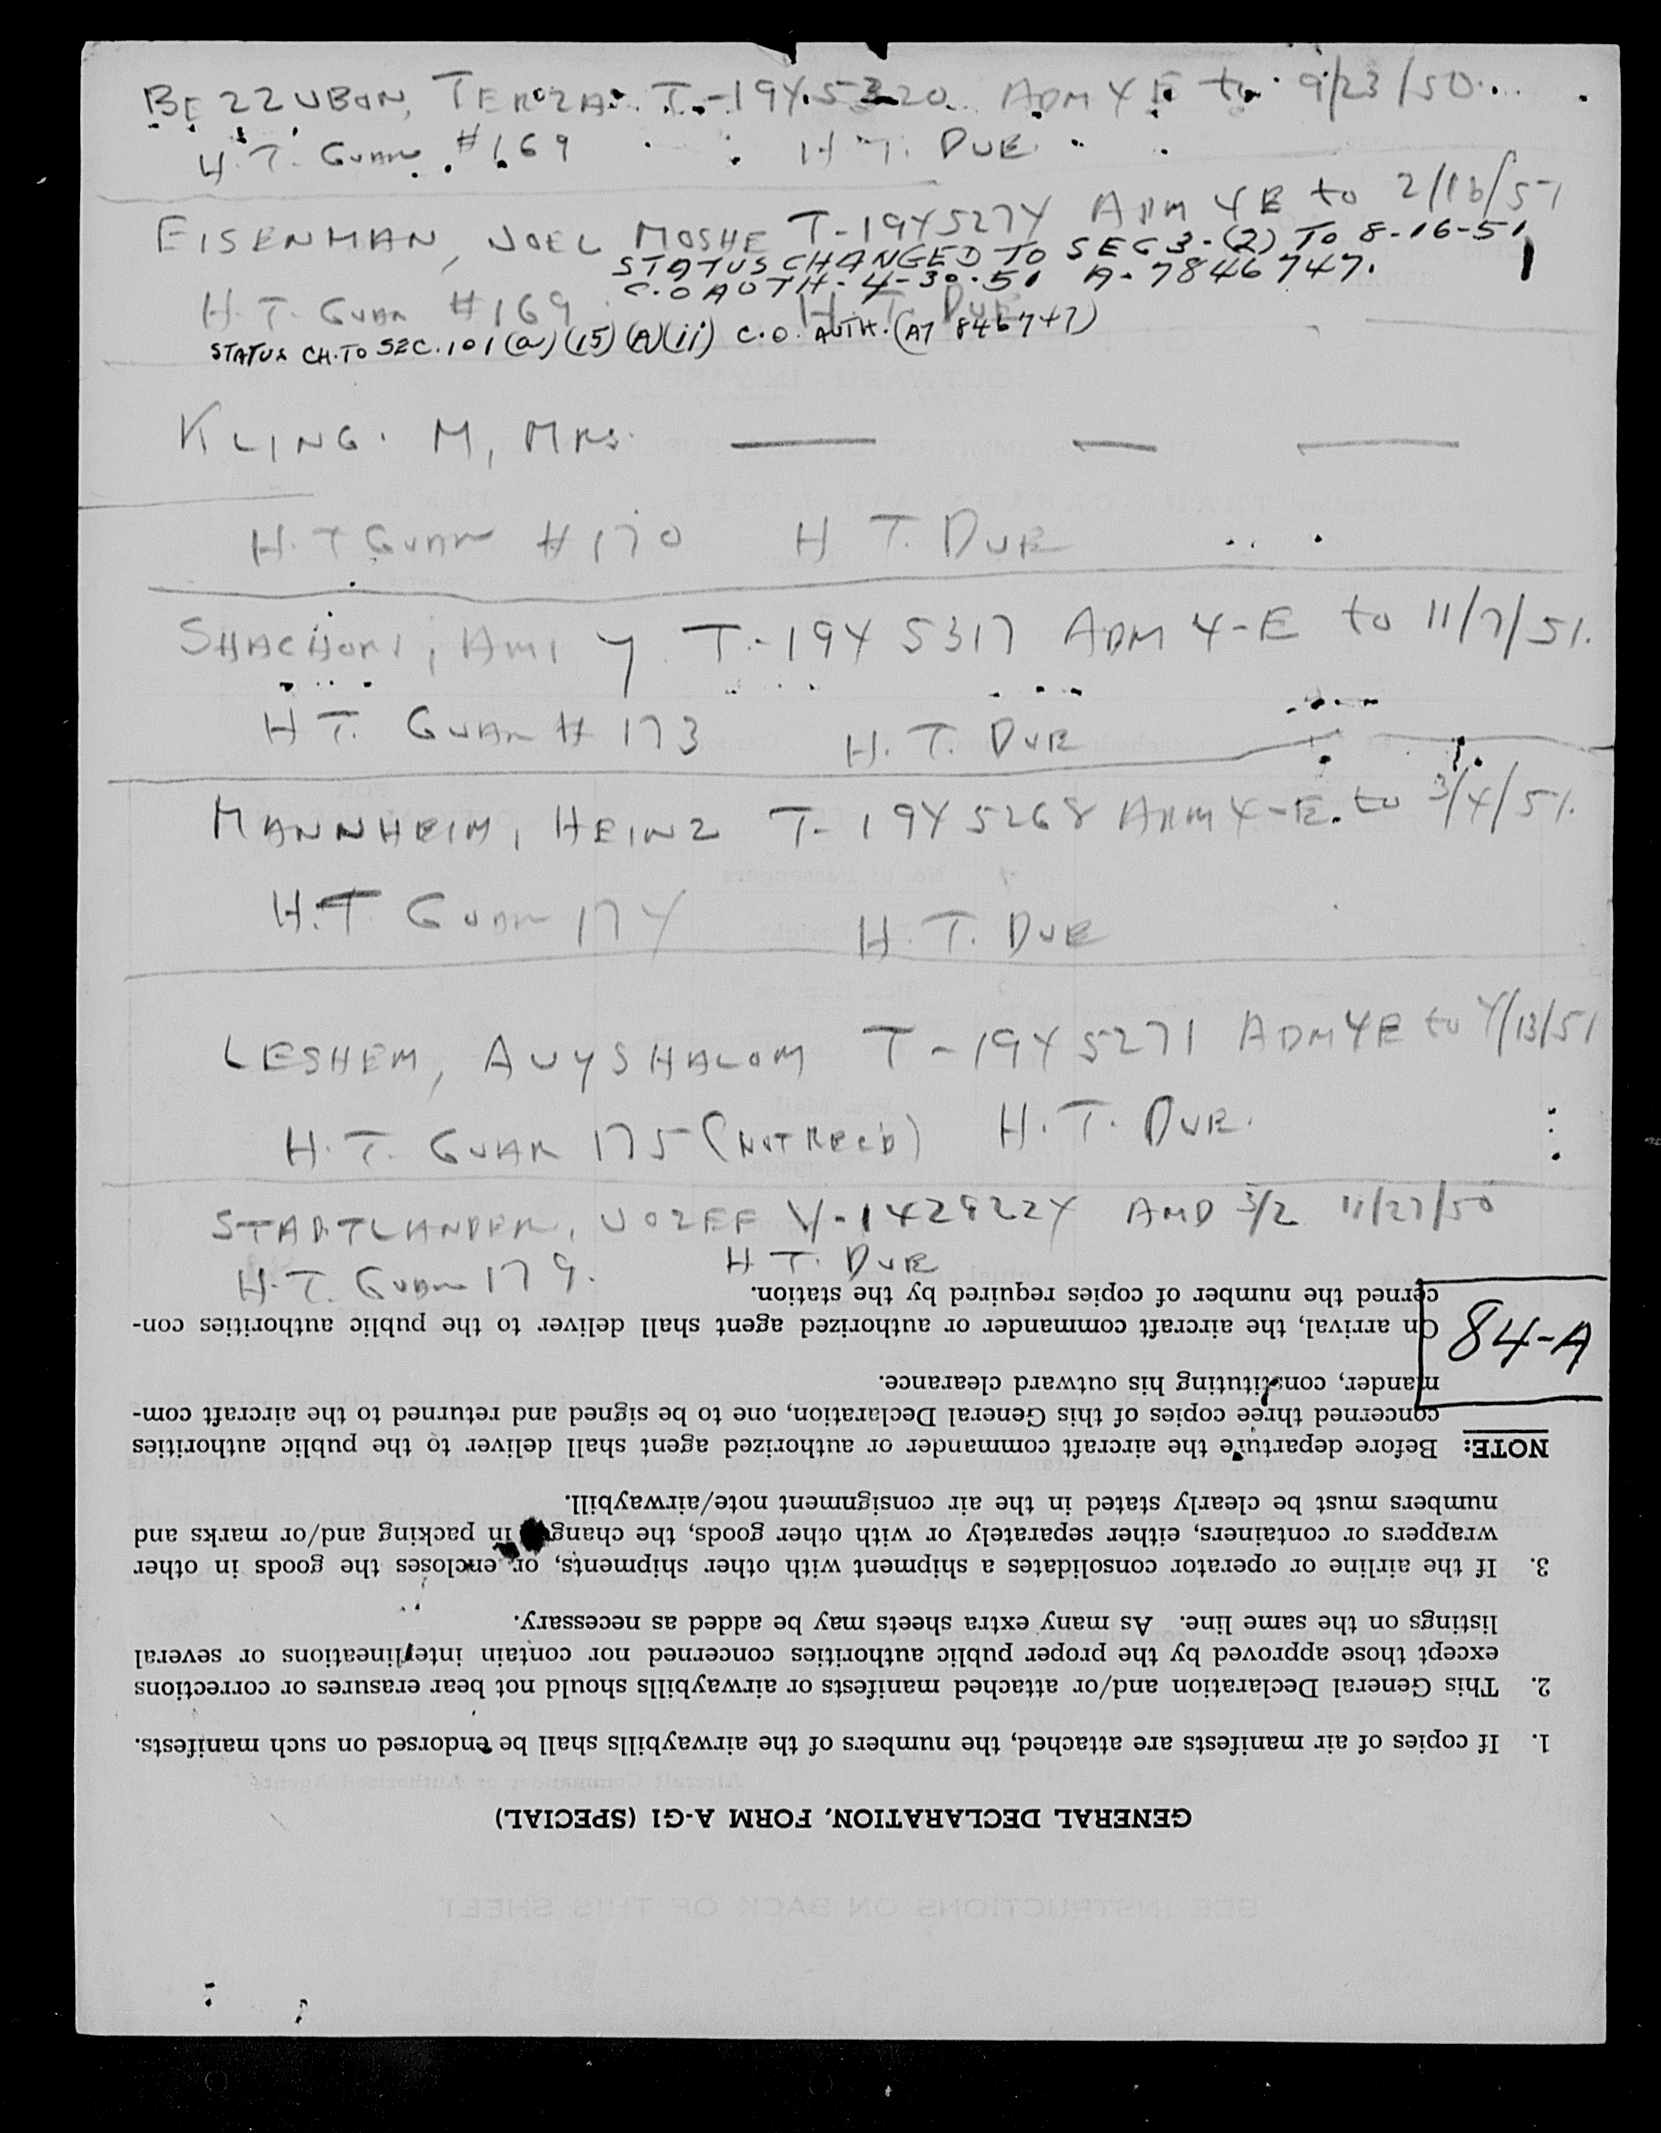 BEZZUBON, TERZA T-1945320 ADM 4E to 9/23/50
H.T. GUAR #169 H.T. DUE
EISENMAN, JOEL MOSHE T-1945274 ADM 4E to 2/16/51
STATUS CHANGED TO SEC 3-(2) TO 8-16-51
C.O AUTH-4-30-51 A-7846747.
H.T. GUAR #169 H.T. DUE
STATUS CH. TO SEC. 101(a)(15)(A)(ii) C.O. AUTH. (A7 846747)
KLING. M, MRS. — — —
H.T GUAR #170 H T. DUE
SHACHORI, AMI Y T-1945317 ADM 4-E to 11/7/51.
H T. GUAR # 173 H.T. DUE
MANNHEIM, HEINZ T-1945268 ADM 4-E. to 3/4/51.
H.T GUAR 174 H.T. DUE
LESHEM, AVYSHALOM T-1945271 ADM 4E to 4/13/51
H.T. GUAR 175 (NOT REC'D) H.T. DUE.
STADTLANDER, JOZEF V-1429224 AMD 3/2 11/27/50
H.T. GUAR 179. H T. DUE
84-A
GENERAL DECLARATION, FORM A-G1 (SPECIAL)
1. If copies of air manifests are attached, the numbers of the airwaybills shall be endorsed on such manifests.
2. This General Declaration and/or attached manifests or airwaybills should not bear erasures or corrections
except those approved by the proper public authorities concerned nor contain interlineations or several
listings on the same line. As many extra sheets may be added as necessary.
3. If the airline or operator consolidates a shipment with other shipments, or encloses the goods in other
wrappers or containers, either separately or with other goods, the change in packing and/or marks and
numbers must be clearly stated in the air consignment note/airwaybill.
NOTE: Before departure the aircraft commander or authorized agent shall deliver to the public authorities
concerned three copies of this General Declaration, one to be signed and returned to the aircraft com-
mander, constituting his outward clearance.
On arrival, the aircraft commander or authorized agent shall deliver to the public authorities con-
cerned the number of copies required by the station.
SEE INSTRUCTIONS ON BACK OF THIS SHEET